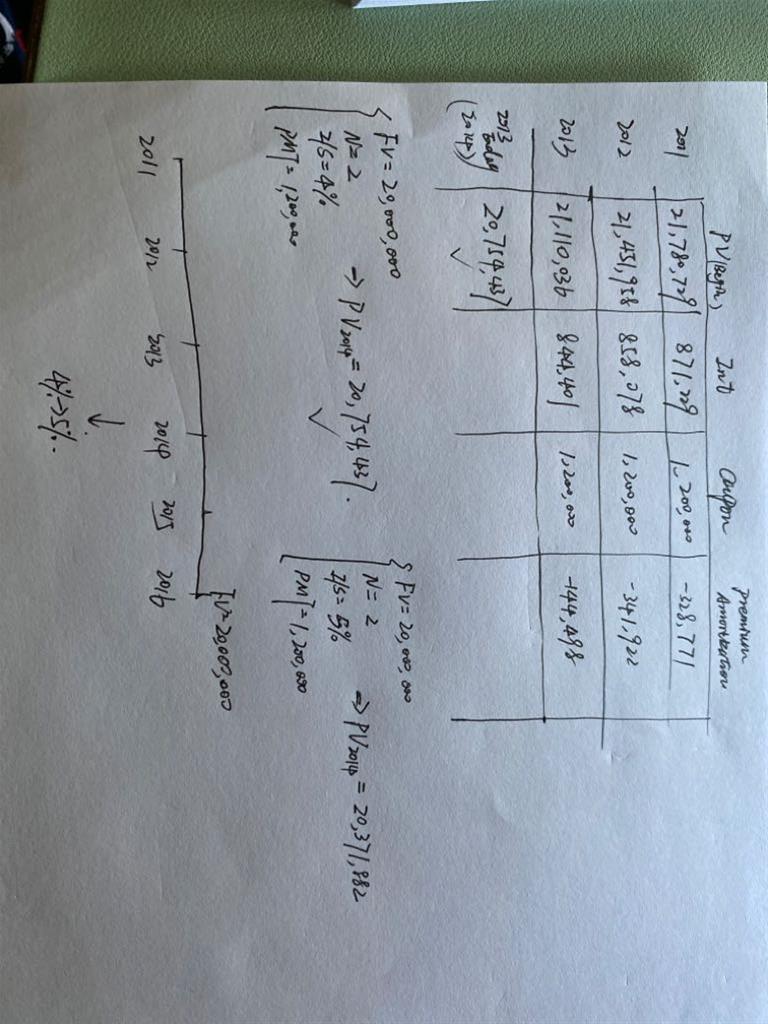 PV(Begin) Int Coupon Premium Amortization
2011 21,780,729 871,229 1,200,000 -328,771
2012 21,451,958 858,078 1,200,000 -341,922
2013 21,110,036 844,401 1,200,000 -444,498
2013 ending (2014) 20,754,437 ✓
{ FV = 20,000,000
N = 2
I/S = 4%
PMT = 1,200,000
⇒ PV2014 = 20,754,437. ✓
{ FV = 20,000,000
N = 2
I/S = 5%
PMT = 1,200,000
⇒ PV2014 = 20,371,882
FV = 20,000,000
2011 2012 2013 2014 2015 2016
↓
4%→5%.